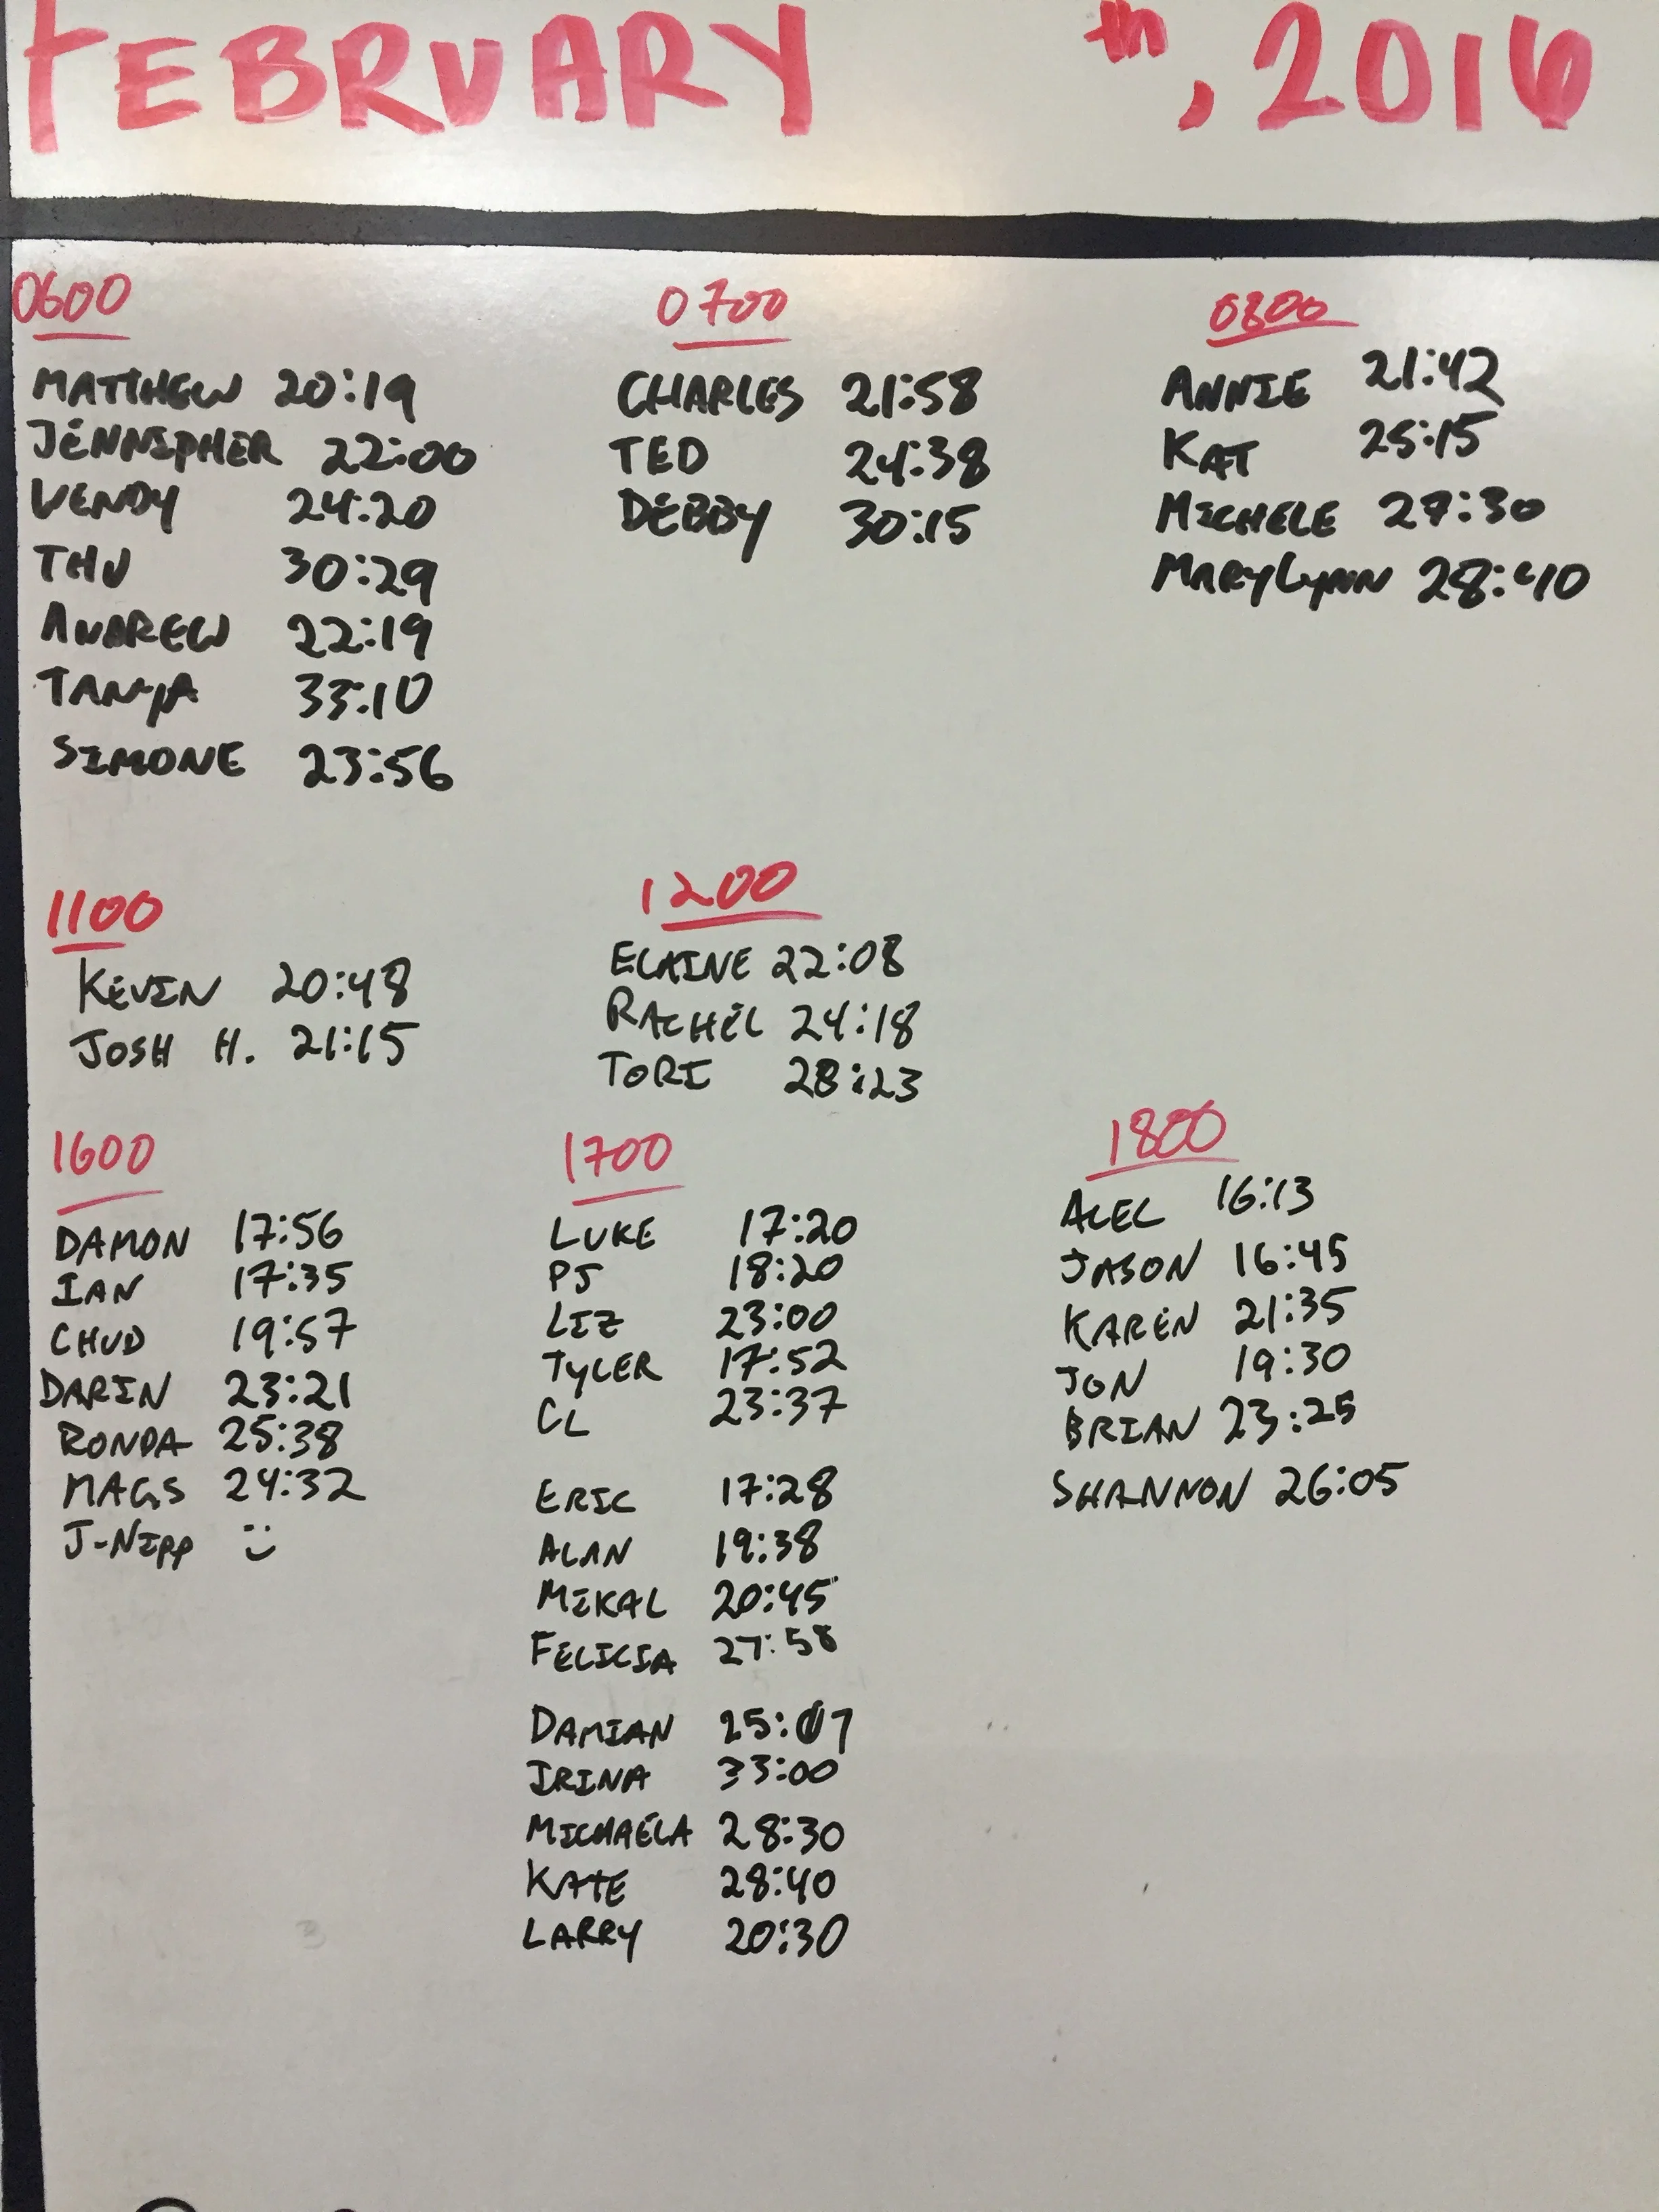 FEBRUARY th, 2016
0600
MATTHEW 20:19
JENNIPHER 22:00
WENDY 24:20
THU 30:29
ANDREW 22:19
TANYA 33:10
SIMONE 23:56
0700
CHARLES 21:58
TED 24:38
DEBBY 30:15
0800
ANNIE 21:42
KAT 25:15
MICHELE 27:30
MARYLYNN 28:40
1100
KEVIN 20:48
JOSH H. 21:15
1200
ELAINE 22:08
RACHEL 24:18
TORI 28:23
1600
DAMON 17:56
IAN 17:35
CHUD 19:57
DARIN 23:21
RONDA 25:38
MAGS 24:32
J-NIPP :)
1700
LUKE 17:20
PJ 18:20
LIZ 23:00
TYLER 17:52
CL 23:37
ERIC 17:28
ALAN 19:38
MIKAL 20:45
FELICIA 27:58
DAMIAN 25:07
IRINA 33:00
MICHAELA 28:30
KATE 28:40
LARRY 20:30
1800
ALEC 16:13
JASON 16:45
KAREN 21:35
JON 19:30
BRIAN 23:25
SHANNON 26:05